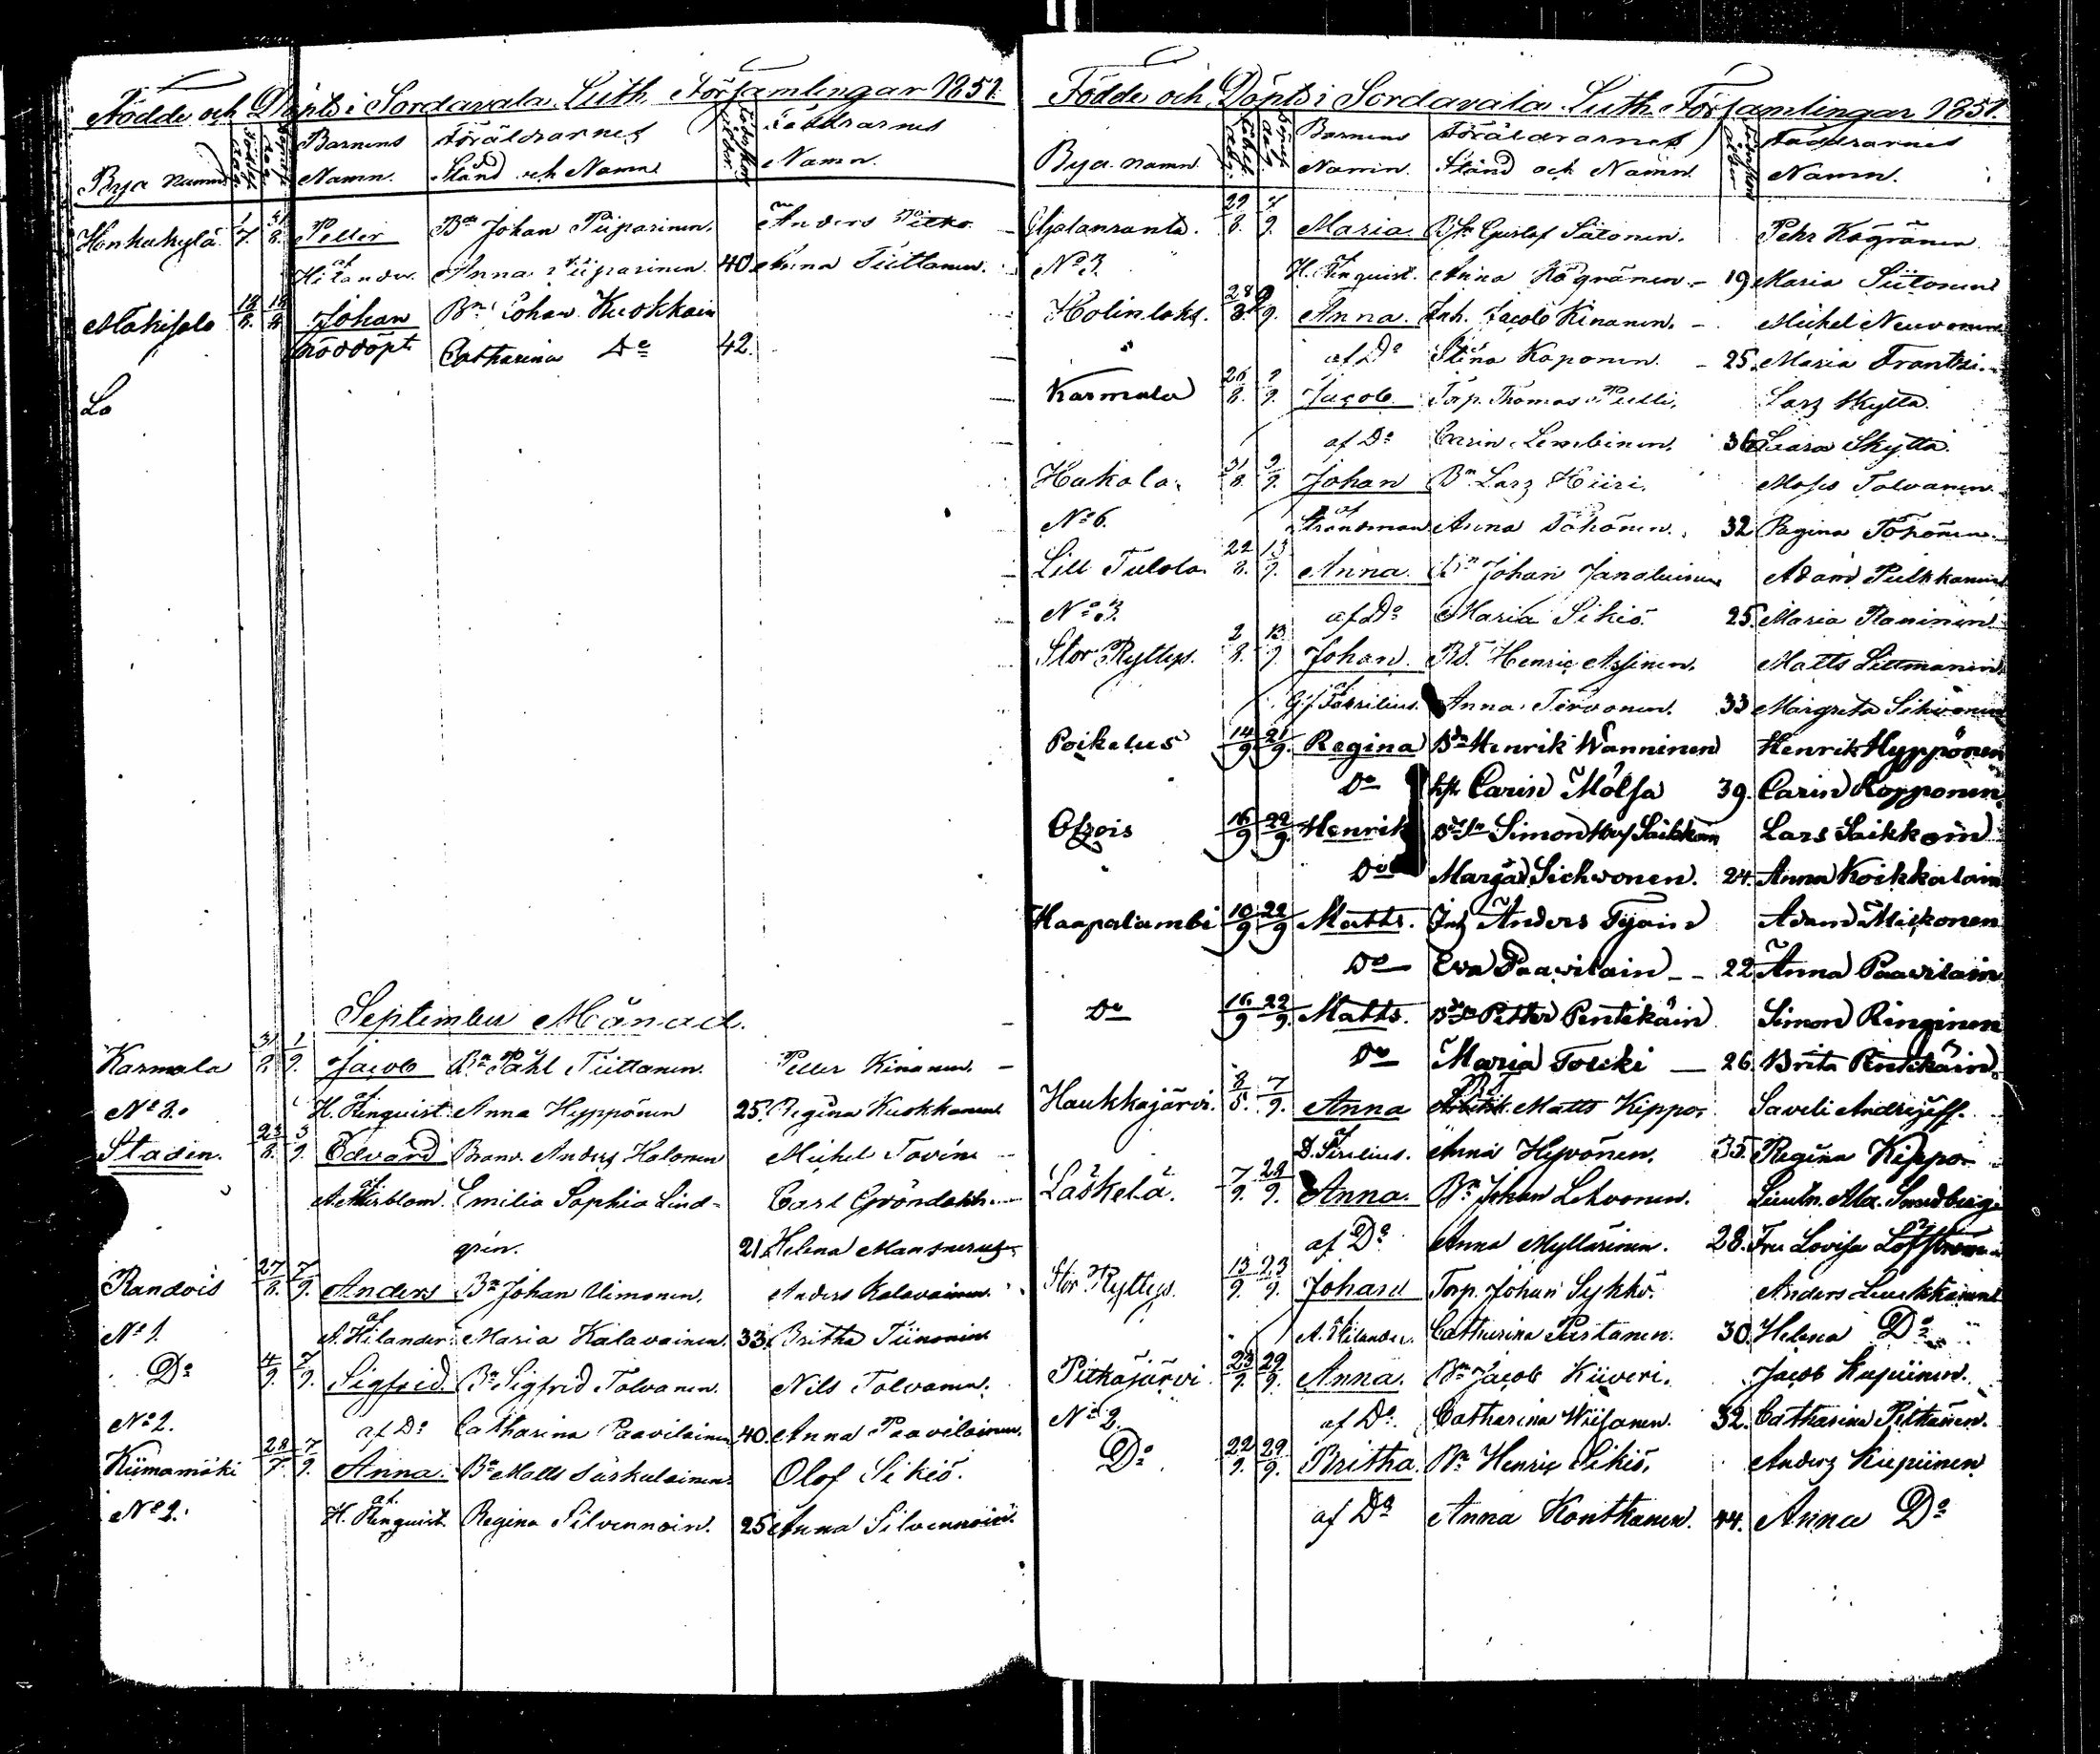 Födde och Döpte i Sordavala Luth. Församlingar 1851.
Bya Namn Födelse dag Döpelse dag Barnens Namn. Föräldrarnes Stånd och Namn Moderns ålder Faddrarnes Namn.
Honkakylä 1/7. 31/8. Petter Bn Johan Piiparinen. Anders Pitko
af Hilander. Anna Piiparinen 40 Anna Tiittanen.
Mäkisalo 18/8. 18/8 Johan Bn Johan Kuokkain
nöddöpt Catharina De 42.
La
September Månad.
Karmala 31/8. 1/9. Jacob Bn Påhl Tiittanen. Petter Kinanen.
No 2. af H. Renquist Anna Hyppönen 25. Regina Kuokkanen
Staden. 23/8. 3/9. Edvard Anders Holonen Michel
af Emilia Sophia Lind- Carl Gröndahl
gren. 21. Helena
Randois 27/8. 7/9. Anders Bn Johan Uimonen. Anders Kalavainen
No 1. af A. Hilander. Maria Kalavainen. 33. Britha Tiinonin
Do 4/9. 7/9. Sigfrid. Bn Sigfrid Tolvanen. Nils Tolvanen.
No 2. af Do Catharina Paavilainen 40. Anna Paavilainen.
Kiimamäki 28/7. 7/9. Anna. Bn Matts Olof Sikiö.
No 2. af H. Renquist Regina Silvennoin. 25 Anna Silvennoin.
Födde och Döpte i Sordavala Luth. Församlingar 1851.
Bya namn Födelse dag Döpelse dag Barnens Namn. Föräldrarnes Stånd och Namn Moderns ålder Faddrarnes Namn.
29/8. 7/9. Maria Gustaf Siitonen. Pehr Kägränen
No 3. af H. Renquist. Anna Kägränen 19 Maria Siitonen
28/8. 9. Anna. Inh. Jacob Kinanen. Michel Neuvonen
af Do Stina Koponen. 25. Maria Frantsi.
Karmala 26/8. 9/9. Jacob. Torp. Thomas Pulli. Lars Skyttä.
af Do Carin Lembinen. 36 Saara Skyttä.
Hakala. 31/8. 9/9. Johan Bn Lars Hiiri. Moses Tolvanen.
No 6. af Strandman Anna Töhönen. 32 Regina Töhönen.
Lill Tulola. 22/8. 13/9. Anna. Bn Johan Adam Pulkkanen
No 3. af Do Maria Sikiö. 25. Maria Raninen
Stor Ryttys. 2/8. 13/9. Johan. Bd. Henric Assinen. Matts Littmanen.
af Anna Tervonen. 33 Margreta Sihvonen
Poikelus 14/9. 21/9. Regina Henrik Wänninen Henrik Hyppönen
Do Carin Mölsä 39. Carin Kopponen.
Otsois 16/9 22/9. Henrik Simon Saikkoin Lars Saikkoin
Do Marja Sichwonen. 24. Anna Koikkalain
Haapalambi 10/9 22/9 Matts. Inh Anders Tyain Adam Mickonen
Do Eva Paavilain 22 Anna Paavilain
Do 16/9 22/9. Matts. Petter Pentikäin Simon Ringinen
Do Maria Tolcki 26. Brita Pentikäin.
Haukkajärvi. 8/5. 7/9. Anna Matts Kippo. Saveli Andrejeff.
af D. Sirelius. Anna Hyvönen. 35. Regina Kippo
Läskelä. 7/9. 28/9. Anna. Bn Johan Lehvonen. Lieutn. Alex. Sundberg.
af Do Anna Myllärinen. 28. Fru Lovisa Löfström
Stor Ryttys. 13/9. 23/9. Johan Torp. Johan Sykkö Anders Luukkanen
A. Hilander. Catharina Pustanen. 30. Helena Do
Pitkäjärvi 23/9. 29/9. Anna. Bn Jacob Kiiveri. Jacob Kupiinen.
No 2. af Do Catharina Wiisanen. 32. Catharina Pitkänen.
Do 22/9. 29/9. Britha. Bn Henric Sikiö. Anders Kupiinen
af Do Anna Konthanen. 44. Anna Do